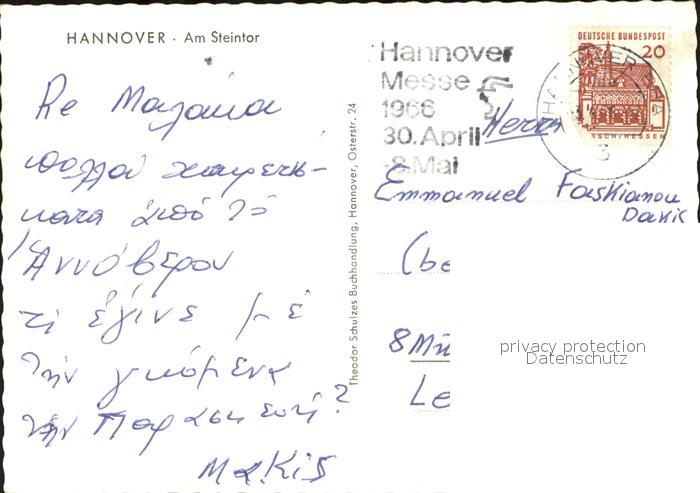 HANNOVER · Am Steintor
Ρε Μαλάκα
πολλά χαιρετισ-
ματα από το
Αννόβερον
τι έγινε με
την γκόμενα
την Παρασκευή?
Μακις
Theodor Schulzes Buchhandlung, Hannover, Osterstr. 24
Hannover
Messe
1966
30. April
-8. Mai
DEUTSCHE BUNDESPOST
20
HANNOVER
3
Herrn
Emmanuel Faskianou
Davic
(be
8 Mü
Le
privacy protection
Datenschutz